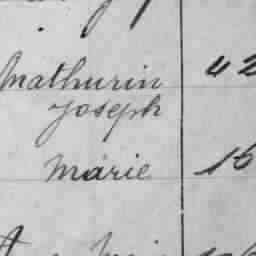 Mathurin 42
Joseph
Marie 16